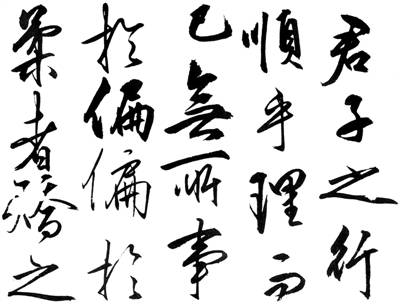 君子之行
順乎理而
已無所事
於偏偏於
柔者濟之